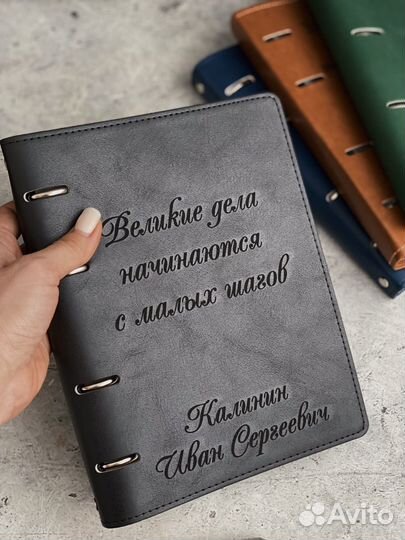 Великие дела
начинаются
с малых шагов
Калинин
Иван Сергеевич
Avito